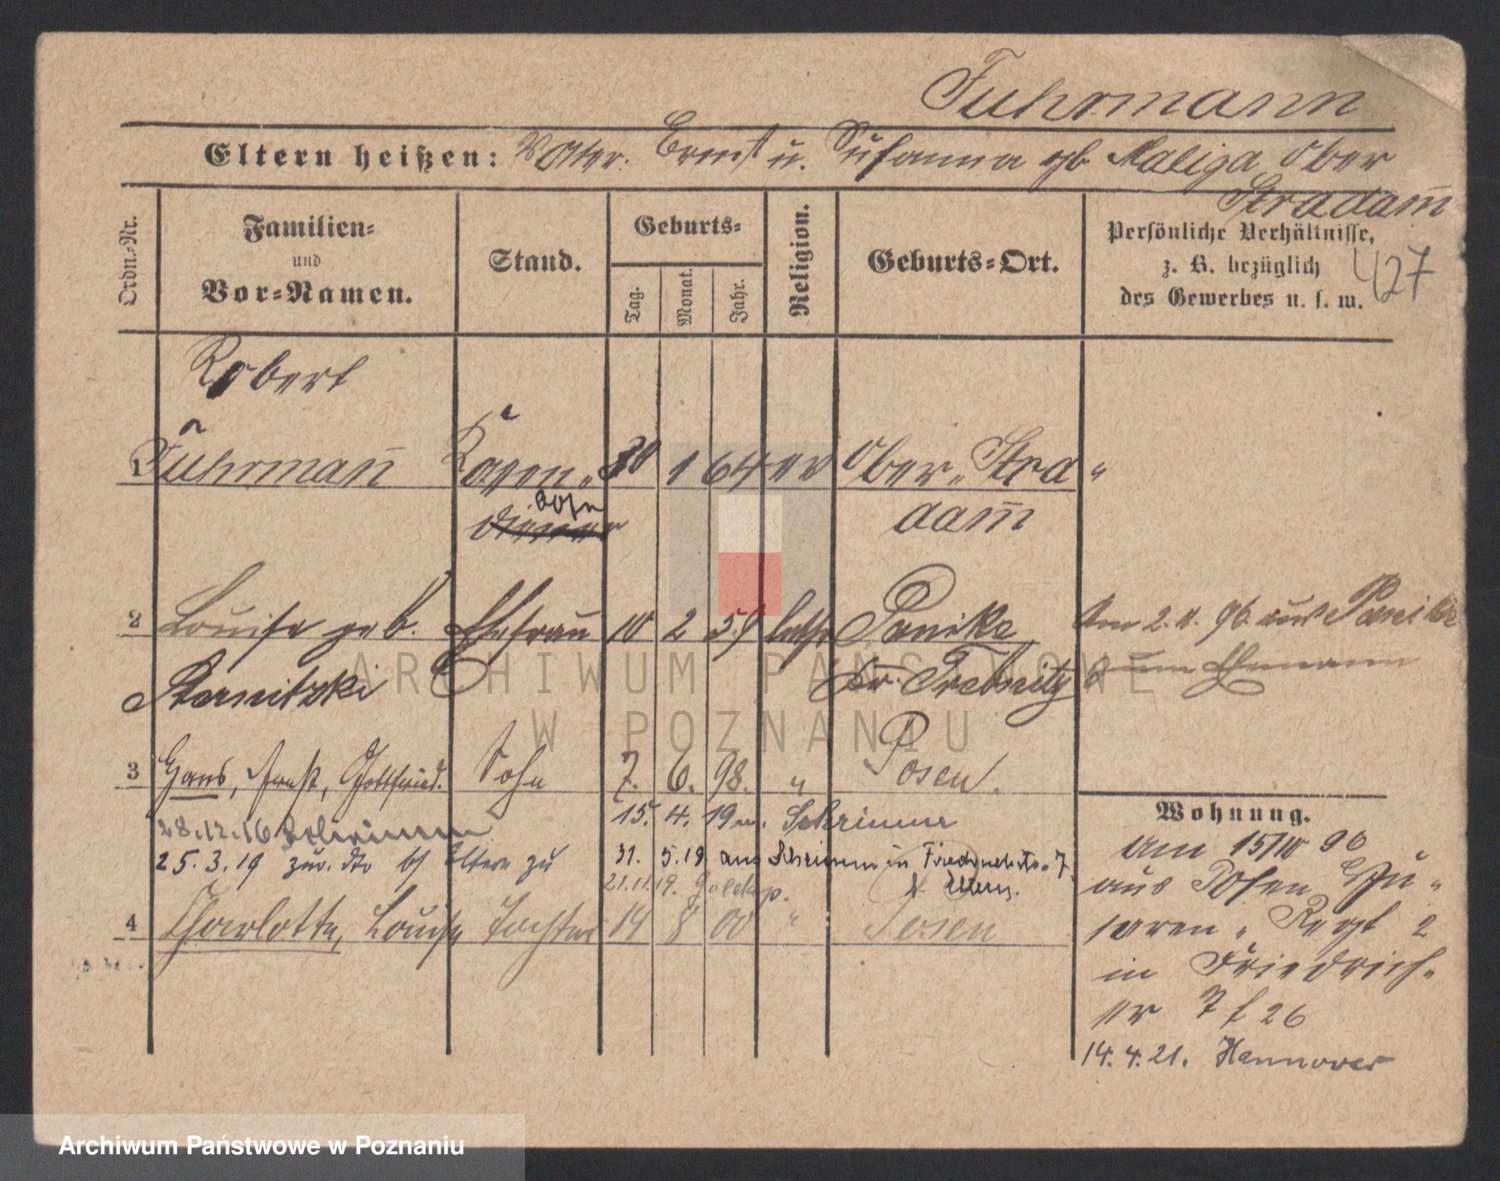 Fuhrmann
Eltern heißen: Vater. Ernst u. Susanna gb Maliga, Ober
Stradam̅
Ordn.-Nr.
Familien-
und
Vor-Namen.
Stand.
Geburts-
Tag.
Monat.
Jahr.
Religion.
Geburts-Ort.
Persönliche Verhältnisse,
z. B. bezüglich
des Gewerbes u. s. w.
427
Robert
1 Fuhrman̅ 30 1 64 ev Ober-Stra-
dam̅
2 Louise geb. Ehefrau 10 2 59 luth Am 2. 11. 96. aus
Sternitzki Kr. Trebnitz zum Ehemann
3 Hans, Ernst, Gottfried. Sohn 7. 6. 98. " Posen.
28.12.16 Schrimm 15. 4. 19 n. Schrimm
25.3.19 zur. Eltern zu 31. 5.19 aus Schrimm in Friedrichstr. 7.
21.11.19. Goldap. b. Eltern.
4 Charlotte, Louise Tochter 14 8 00 " Posen
Wohnung.
am 15/10 90
aus Posen Hu-
saren-Regt 2
in Friedrich-
str 7 f 26
14.4.21. Hannover
ARCHIWUM PAŃSTWOWE
W POZNANIU
Archiwum Państwowe w Poznaniu